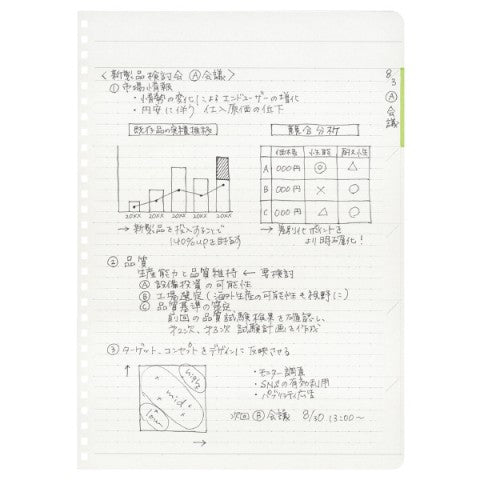 〈新製品検討会 Ⓐ会議〉
8/3 Ⓐ会議
① 市場情報
・情勢の変化によるエンドユーザーの増化
・円安に伴う 仕入原価の低下
既存品の実績推移
競合分析
価格 性能 耐久性
A 000円 ◎ △
B 000円 × ○
C 000円 △ ○
20XX 20XX 20XX 20XX 20XX
→ 新製品を投入することで
140%upを目指す
→ 差別化ポイントを
より明確化!
② 品質
生産能力と品質維持 ← 要検討
Ⓐ 設備投資の可能性
Ⓑ 工場選定(海外生産の可能性も視野に)
Ⓒ 品質基準の策定
前回の品質試験結果を確認し、
オ2次、オ3次 試験計画を作成
③ ターゲット、コンセプトをデザインに反映させる
high
mid
low
・モニター調査
・SNSの有効利用
・パブリシティ広告
次回 Ⓑ会議 8/30 13:00〜